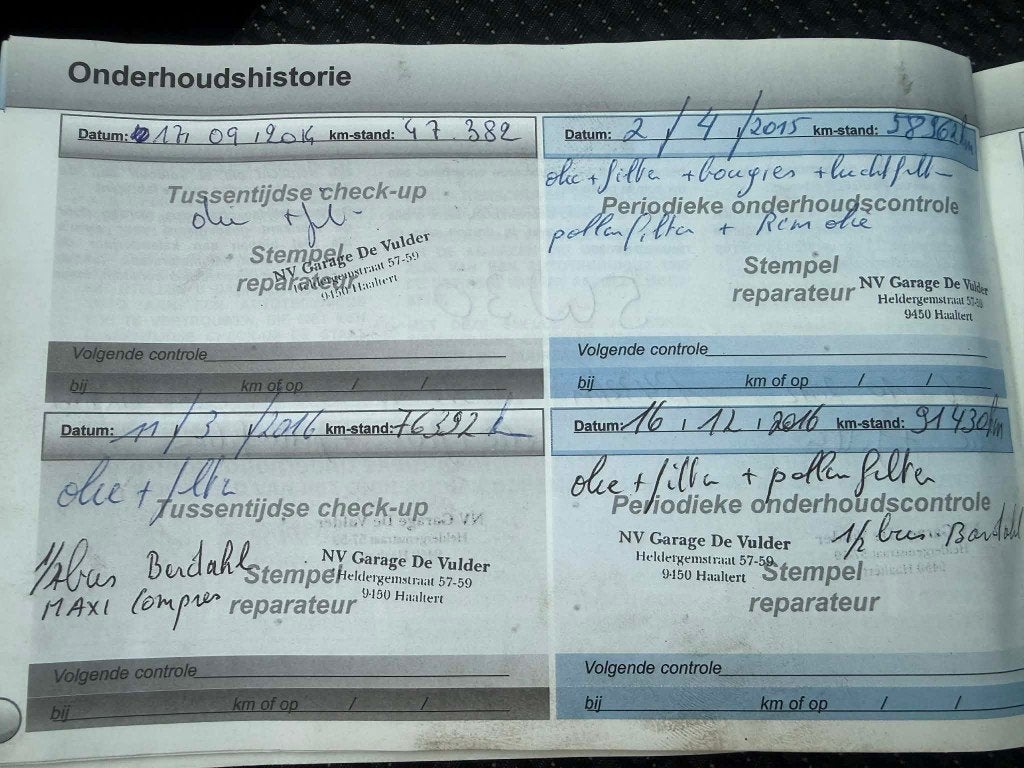 Onderhoudshistorie
Datum: 17 09 2014 km-stand: 47.382
olie + fil
Tussentijdse check-up
Stempel
reparateur
NV Garage De Vulder
Heldergemstraat 57-59
9450 Haaltert
Volgende controle
bij km of op / /
Datum: 2 / 4 / 2015 km-stand: 58962 km
olie + filter + bougies + luchtfilter
Periodieke onderhoudscontrole
pollenfilter + Rem olie
Stempel
reparateur
NV Garage De Vulder
Heldergemstraat 57-59
9450 Haaltert
Volgende controle
bij km of op / /
Datum: 11 / 3 / 2016 km-stand: 76392 k
olie + filter
Tussentijdse check-up
1/2 bus Bardahl
MAXI Compres
Stempel
reparateur
NV Garage De Vulder
Heldergemstraat 57-59
9450 Haaltert
Volgende controle
bij km of op / /
Datum: 16 , 12 , 2016 km-stand: 91430 km
olie + filter + pollenfilter
Periodieke onderhoudscontrole
1/2 bus Bardahl
NV Garage De Vulder
Heldergemstraat 57-59
9450 Haaltert
Stempel
reparateur
Volgende controle
bij km of op / /